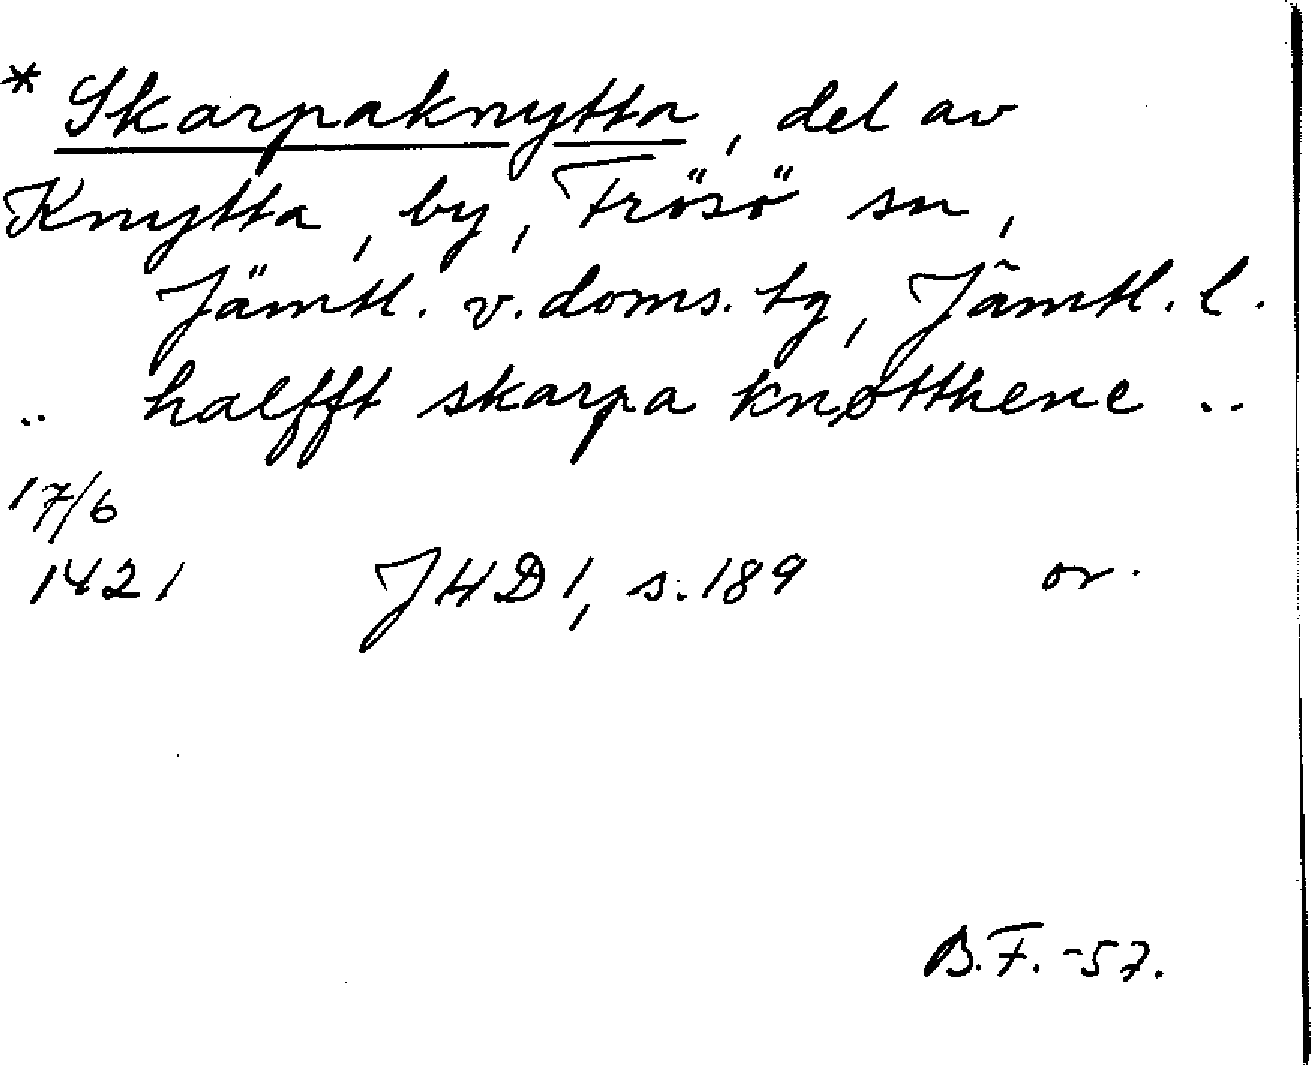 * Skarpaknytta, del av
Knytta, by, Frösö sn,
Jämtl. v. doms. tg, Jämtl. l.
.. halfft skarpa knøtthene ..
17/6
1421 JHD 1, s. 189 or.
B.F. -57.